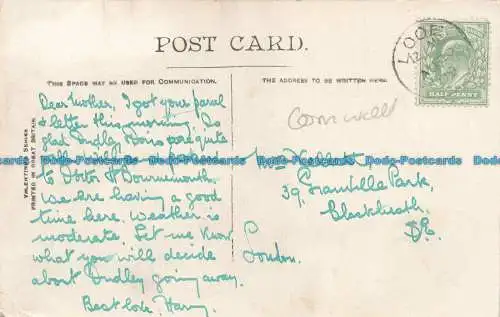 POST CARD.
THIS SPACE MAY BE USED FOR COMMUNICATION.
THE ADDRESS TO BE WRITTEN HERE.
LOOE
HALF PENNY
Cornwall
VALENTINES SERIES
PRINTED IN GREAT BRITAIN
Dear Mother, I got your parcel
& letter this morning. So
glad Dudley & Doris are quite
to Doctor & Bournemouth.
We are having a good
time here. Weather is
moderate. Let me know
what you will decide
about Dudley going away.
Best love Harry.
Mrs
39, Granville Park,
Blackheath,
S.E.
London.
Dodo-Postcards Dodo-Postcards Dodo-Postcards Dodo-Postcards Dodo-Postcards